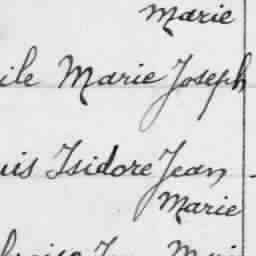 Marie
ile Marie Joseph
uis Isidore Jean
Marie